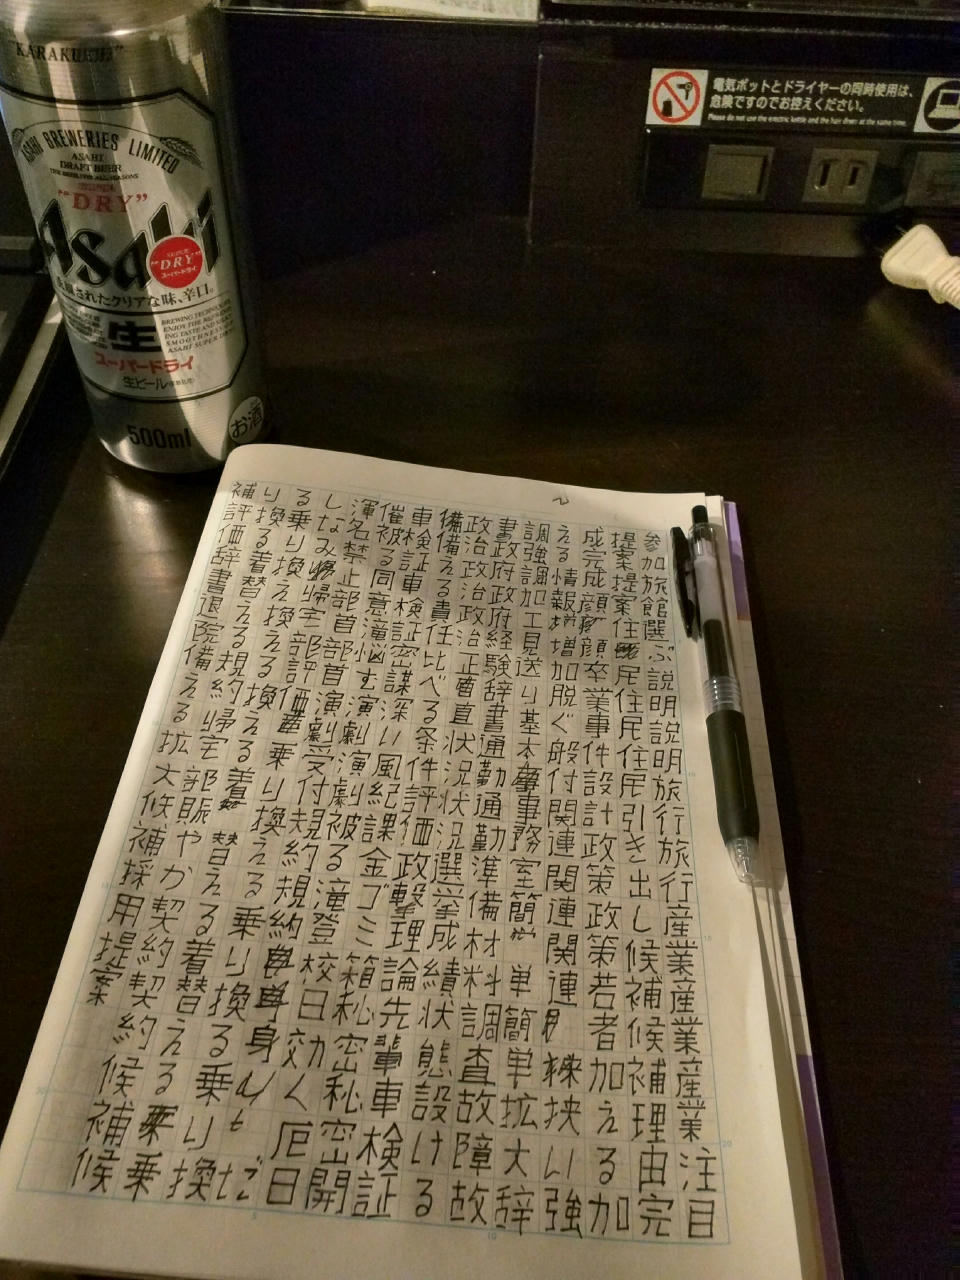 "KARAKUCHI"
ASAHI BREWERIES LIMITED
ASAHI
DRAFT BEER
"DRY"
Asahi
SUPER
"DRY"
スーパードライ
洗練されたクリアな味、辛口。
生
スーパードライ
生ビール
500ml
お酒
電気ポットとドライヤーの同時使用は、
危険ですのでお控えください。
Please do not use the electric kettle and the hair dryer at the same time.
参加旅館選ぶ説明説明旅行旅行産業産業産業注目
提案提案住民住民住民引き出し候補候補理由完
成完成顔顔卒業事件設計政策政策若者加える加
える情報増加脱ぐ般付関連関連関連練挟い強
調強調加工見送り基本事務室簡単簡単拡大辞
書政府政府経験辞書通勤通勤準備材料調査故障故
政治政治政治正直直状況状況選挙成績状態設ける
備備える責任比べる条件評価政撃理論先輩車検証
車検証車検証密謀深い風紀課金ゴミ箱秘密秘密開
催被る同意滝悩む演劇演劇被る滝登校日効く厄日
渾名禁止部首部首演劇受付規約規約身だ
しなみ帰宅部評価乗り換える乗り換る乗り換
る乗り換え換える換える着替える着替える乗
り換る着替える規約帰宅部賑やか契約契約候補候
補評価辞書退院備える拡大候補採用提案